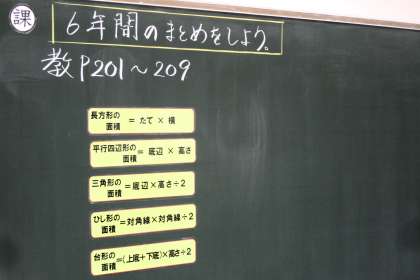 課
6年間のまとめをしよう。
教P201～209
長方形の
面積 = たて × 横
平行四辺形の
面積 = 底辺 × 高さ
三角形の
面積 =底辺×高さ÷2
ひし形の
面積 =対角線×対角線÷2
台形の
面積 =(上底+下底)×高さ÷2